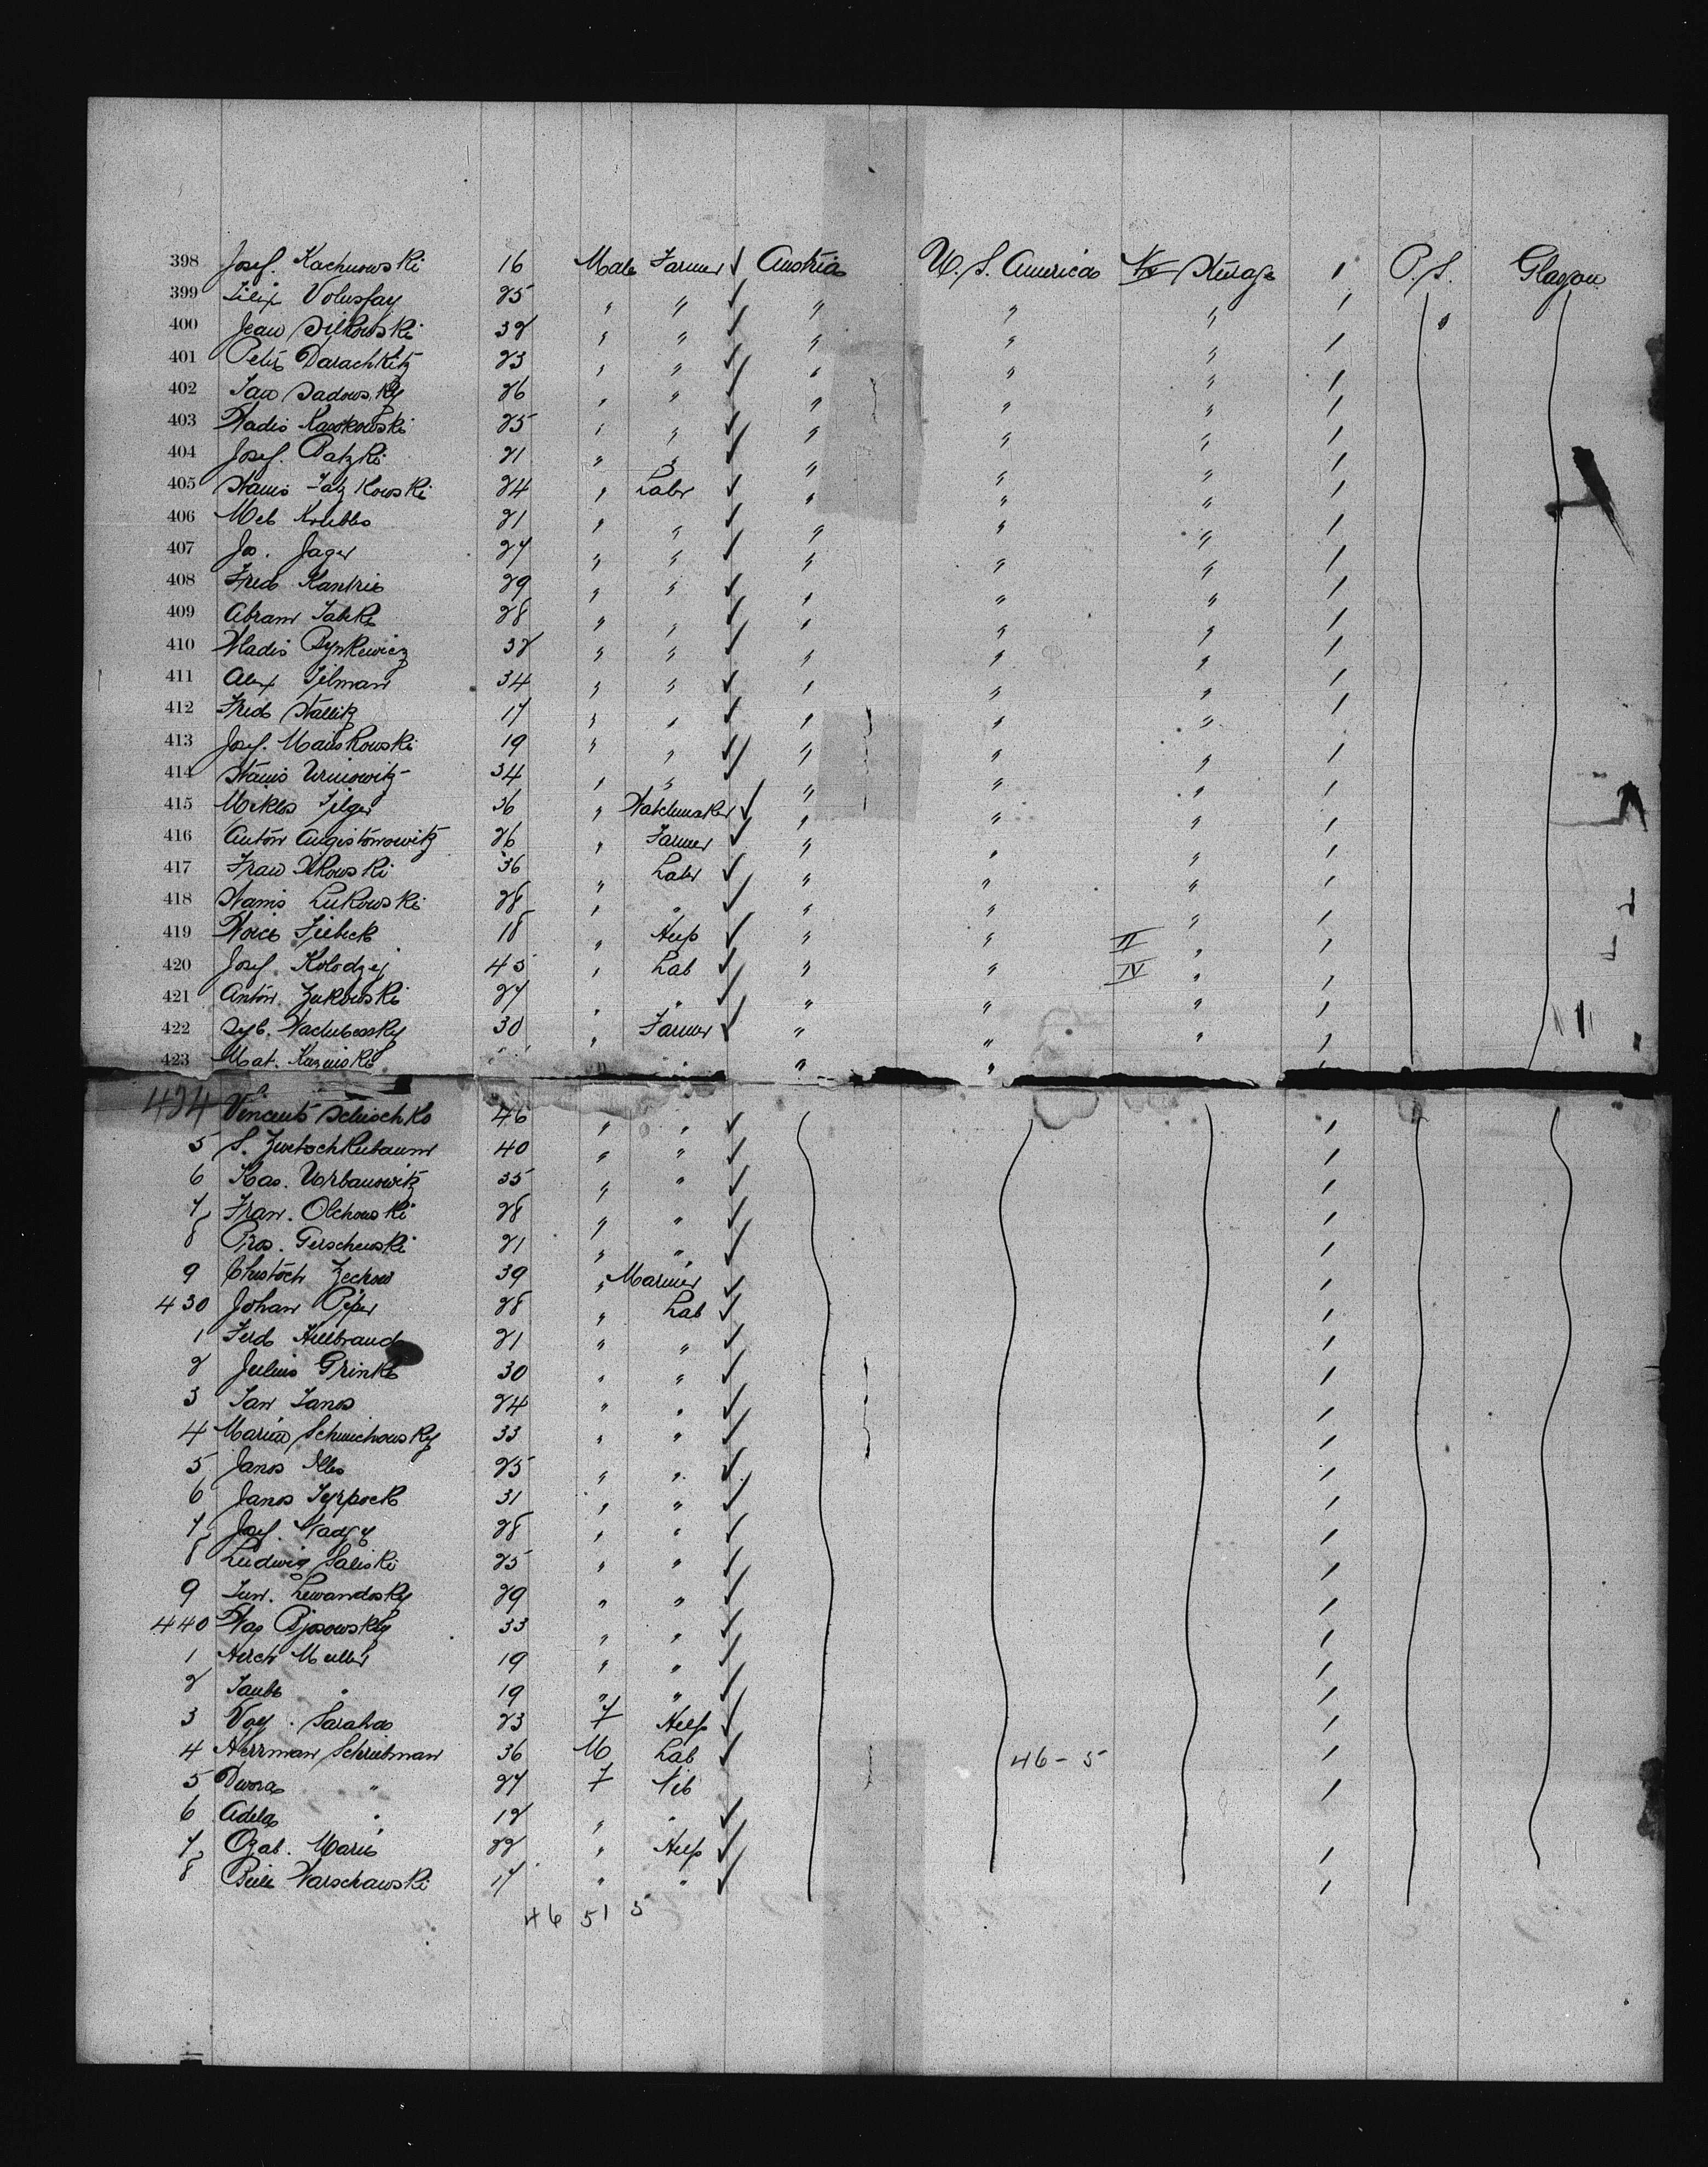 398 Josef. Kachnowski 16 Male Farmer ✓ Austria U. S. America IV Steerage 1 P. S. Glasgow
399 Felix Volussay 25 " " ✓ " " " 1
400 Jean 32 " " ✓ " " " 1
401 Peter Darachkitz 23 " " ✓ " " " 1
402 Jan Sadowsky 26 " " ✓ " " " 1
403 Wladis 25 " " ✓ " " " 1
404 Josef. Patzki 21 " " ✓ " " " 1
405 Stanis Jatzkowski 24 " Labr ✓ " " " 1
406 21 " " ✓ " " " 1
407 Jos. Jager 27 " " ✓ " " " 1
408 Fred Kankris 29 " " ✓ " " " 1
409 Abram 28 " " ✓ " " " 1
410 Wladis Pynkewicz 32 " " ✓ " " " 1
411 Alex Filman 34 " " ✓ " " " 1
412 Fred Stallitz 17 " " ✓ " " " 1
413 Josef. Mankowski 19 " " ✓ " " " 1
414 Stanis Urniowitz 34 " " ✓ " " " 1
415 Miklos Filger 36 " Watchmaker ✓ " " " 1
416 Anton Augistonowitz 26 " Farmer ✓ " " " 1
417 Fran 36 " Labr ✓ " " " 1
418 Stanis Lukowski 28 " " ✓ " " " 1
419 18 " Help ✓ " " II " 1
420 Josef. Kolodzej 45 " Lab ✓ " " IV " 1
421 Anton. Zukowski 27 " " ✓ " " " 1
422 30 " Farmer ✓ " " " 1
423 Mat. Kazinski " " " "
424 Vincent 46 " " ✓ 1
5 S. 40 " " ✓ 1
6 Kas. Urbanowitz 35 " " ✓ 1
7 Fran. Olchowski 28 " " ✓ 1
8 Pros. Gerschewski 21 " " ✓ 1
9 Christoch Zechow 39 " Mariner ✓ 1
430 Johan Piper 28 " Lab ✓ 1
1 Ferd Hilbrand 21 " " ✓ 1
2 Julius Grinke 30 " " ✓ 1
3 Jan Janos 24 " " ✓ 1
4 33 " " ✓ 1
5 Janos Illes 25 " " ✓ 1
6 Janos 31 " " ✓ 1
7 Josef. Nadgy 28 " " ✓ 1
8 Ludwig Saliski 25 " " ✓ 1
9 Lewandosky 29 " " ✓ 1
440 33 " " ✓ 1
1 Hirch Muller 19 " " ✓ 1
2 Taube " 19 " " ✓ 1
3 Sarah 23 F Help ✓ 1
4 Herrman Schribman 36 M Lab ✓ 46-5 1
5 Dwora " 27 F 1
6 Adela " 12 " " ✓
7 Ozab. Marie 22 " Help ✓ 1
8 Warschawski 17 " " ✓ 1
46 51 5